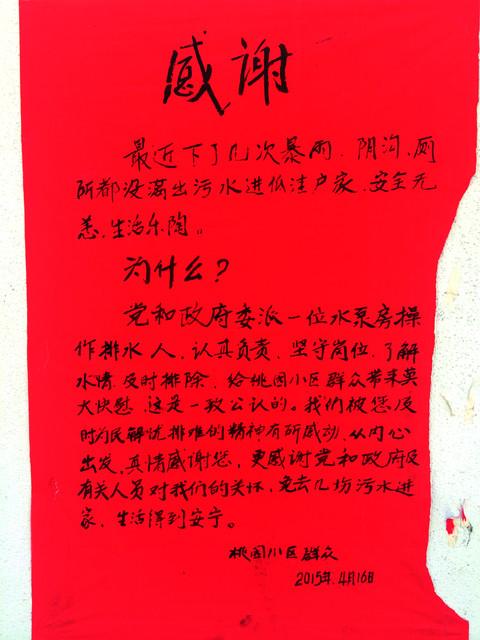 感谢
最近下了几次暴雨、阴沟、厕
所都没满出污水进低洼户家、安全无
恙、生活乐陶。
为什么?
党和政府委派一位水泵房操
作排水人、认真负责、坚守岗位、了解
水情、及时排除、给桃园小区群众带来莫
大快慰、这是一致公认的。我们被您及
时为民解忧排难的精神有所感动、从内心
出发、真情感谢您、更感谢党和政府及
有关人员对我们的关怀、免去几场污水进
家、生活得到安宁。
桃园小区群众
2015年4月16日